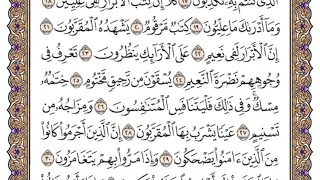 الَّذِي كُنْتُمْ بِهِ تُكَذِّبُونَ ١٧ كَلَّا إِنَّ كِتَابَ الْأَبْرَارِ لَفِي عِلِّيِّينَ ١٨
وَمَا أَدْرَاكَ مَا عِلِّيُّونَ ١٩ كِتَابٌ مَرْقُومٌ ٢٠ يَشْهَدُهُ الْمُقَرَّبُونَ ٢١
إِنَّ الْأَبْرَارَ لَفِي نَعِيمٍ ٢٢ عَلَى الْأَرَائِكِ يَنْظُرُونَ ٢٣ تَعْرِفُ فِي
وُجُوهِهِمْ نَضْرَةَ النَّعِيمِ ٢٤ يُسْقَوْنَ مِنْ رَحِيقٍ مَخْتُومٍ ٢٥ خِتَامُهُ
مِسْكٌ وَفِي ذَلِكَ فَلْيَتَنَافَسِ الْمُتَنَافِسُونَ ٢٦ وَمِزَاجُهُ مِنْ
تَسْنِيمٍ ٢٧ عَيْنًا يَشْرَبُ بِهَا الْمُقَرَّبُونَ ٢٨ إِنَّ الَّذِينَ أَجْرَمُوا كَانُوا
مِنَ الَّذِينَ آمَنُوا يَضْحَكُونَ ٢٩ وَإِذَا مَرُّوا بِهِمْ يَتَغَامَزُونَ ٣٠